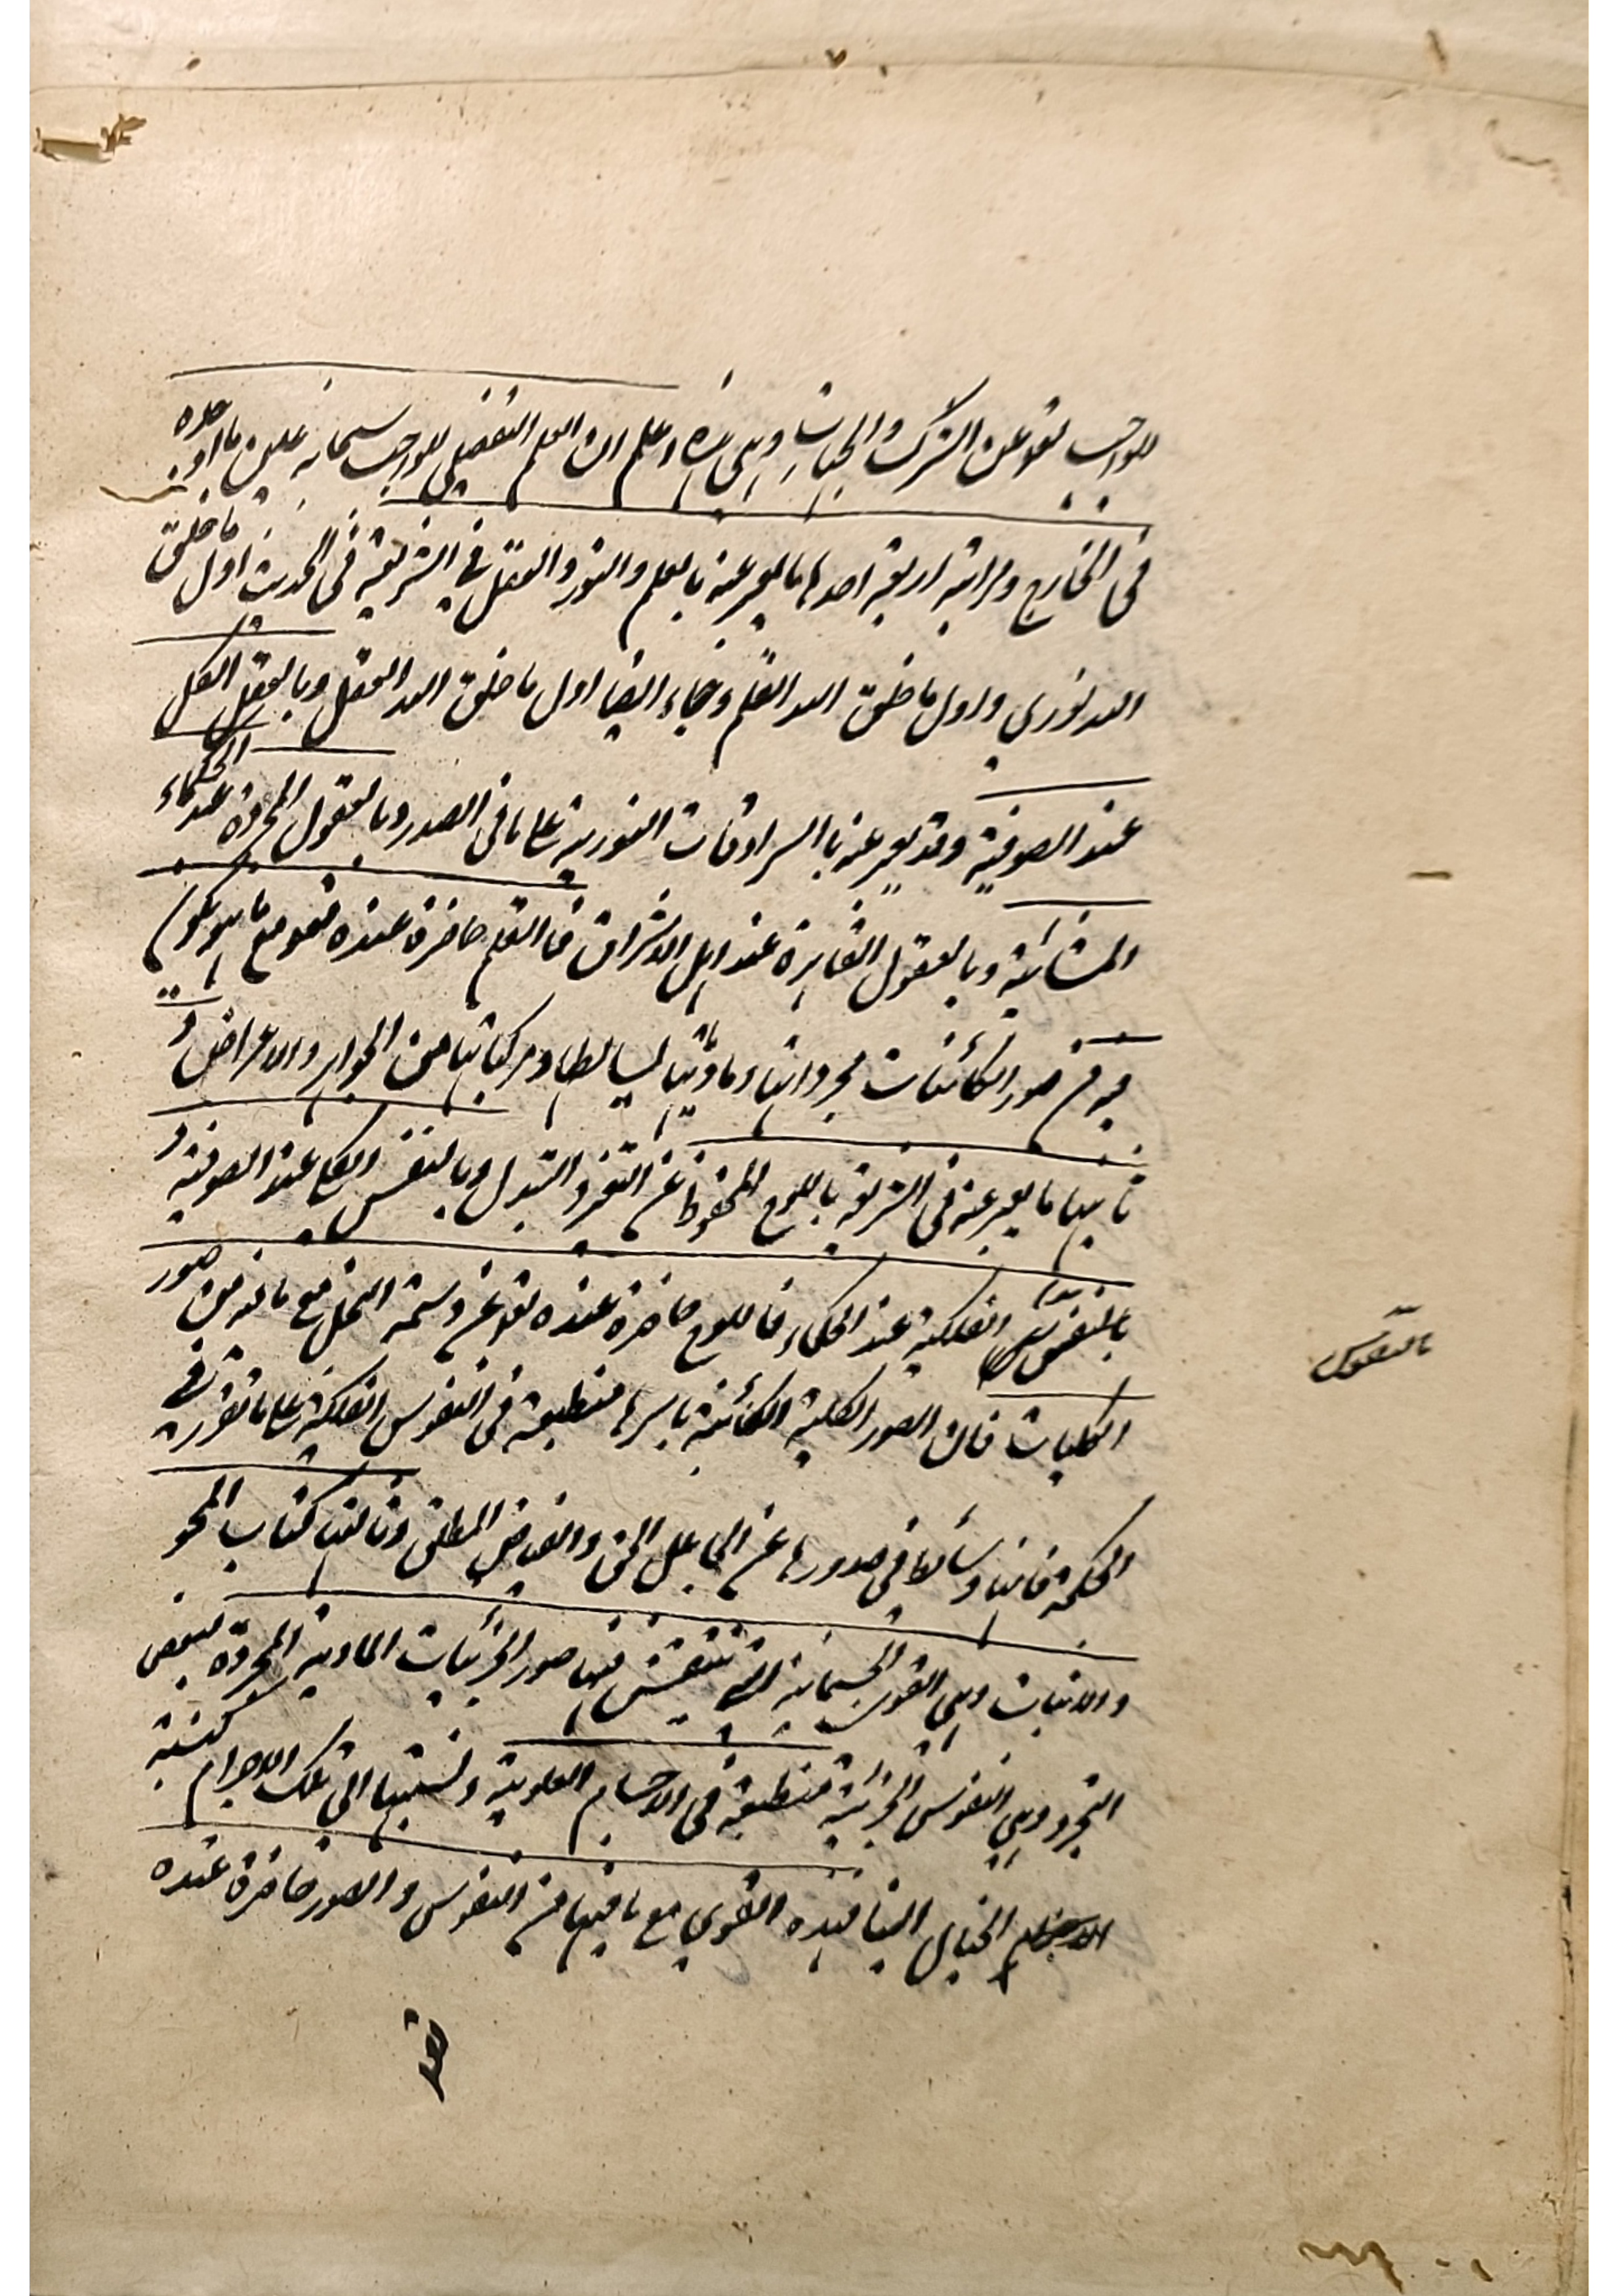 للواجب تعالى عن الشرك والجهات وهي هذه اعلم ان العلم التفصيلي للواجب سبحانه عين ما اوجده
في الخارج ومراتبه اربعة احدها ما يعبر عنه بالعلم والنور والعقل في الشريعة في الحديث اول ما خلق
الله نوري واول ما خلق الله القلم وجاء ايضا اول ما خلق الله العقل وبالعقل الكل
عند الصوفية وقد يعبر عنه باالسرادقات النورية على ما في الصدور وبالعقول المجردة عند الحكماء
المشائية وبالعقول القاهرة عند اهل الاشراق فالقلم حاضرة عنده تعالى مع ما هو مكون
فيه من صور الكائنات مجرداتها وماديتها بسائطها ومركباتها من الجواهر والاعراض و
ثانيها ما يعبر عنه في الشريعة باللوح المحفوظ عن التغير والتبدل وبالنفس الكل عند الصوفية و
بالنفس الفلكية عند الحكماء فاللوح حاضرة عنده تعالى عن وسمة مع ما فيه من صور
بالنفوس
الكليات فان الصور الكلية الكائنة باسرها منطبعة في النفوس الفلكية على ما تقرر في
الحكمة فانها وسائط في صدورها عن الجاعل الحق والفياض المطلق وثالثها كتاب المحو
والاثبات وهي القوى الجسمانية التي تنتقش فيها صور الجزئيات المادية المجردة ببعض
التجرد وهي النفوس الجزئية منطبعة في الاجسام العلوية ونسبتها الى تلك الاجرام كنسبة
الخيال الينا فهذه القوى مع ما فيها من النفوس والصور حاضرة عنده